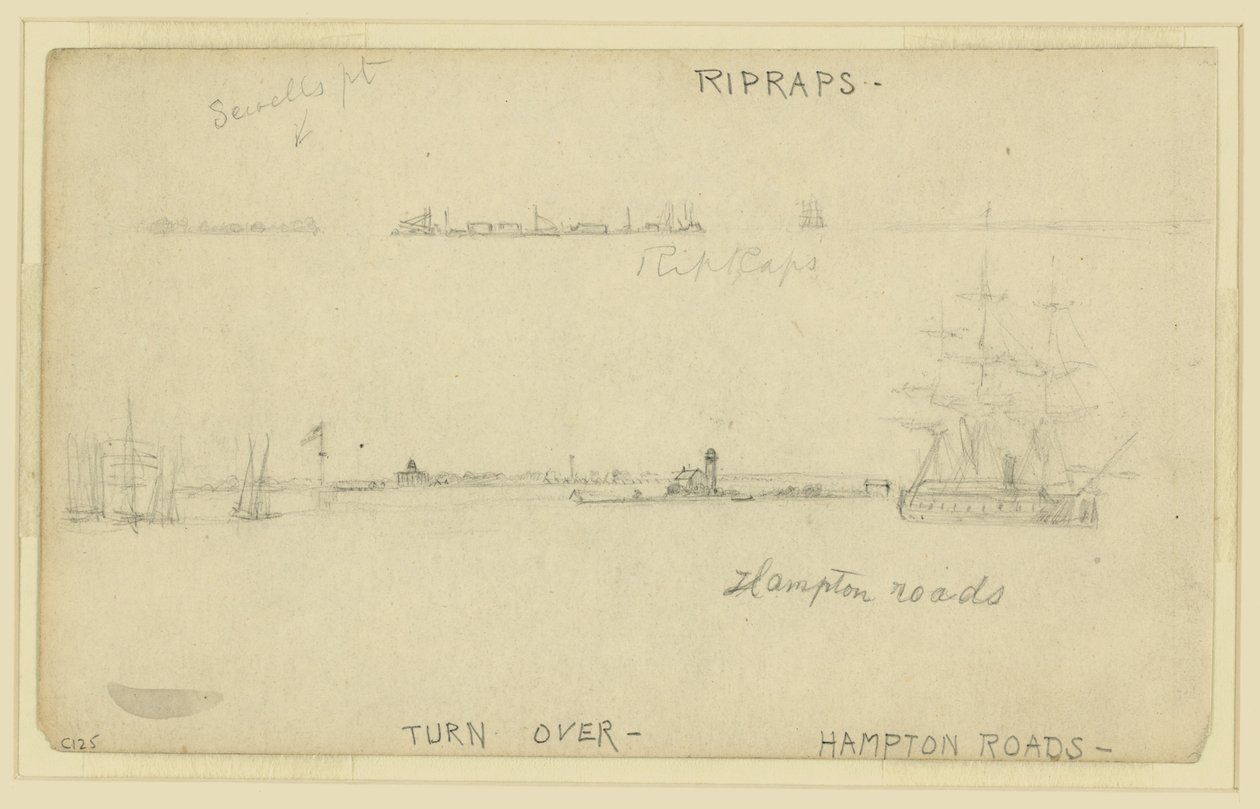 Sewells pt
RIPRAPS--
Rip Raps
Hampton roads
TURN OVER-
HAMPTON ROADS-
C125